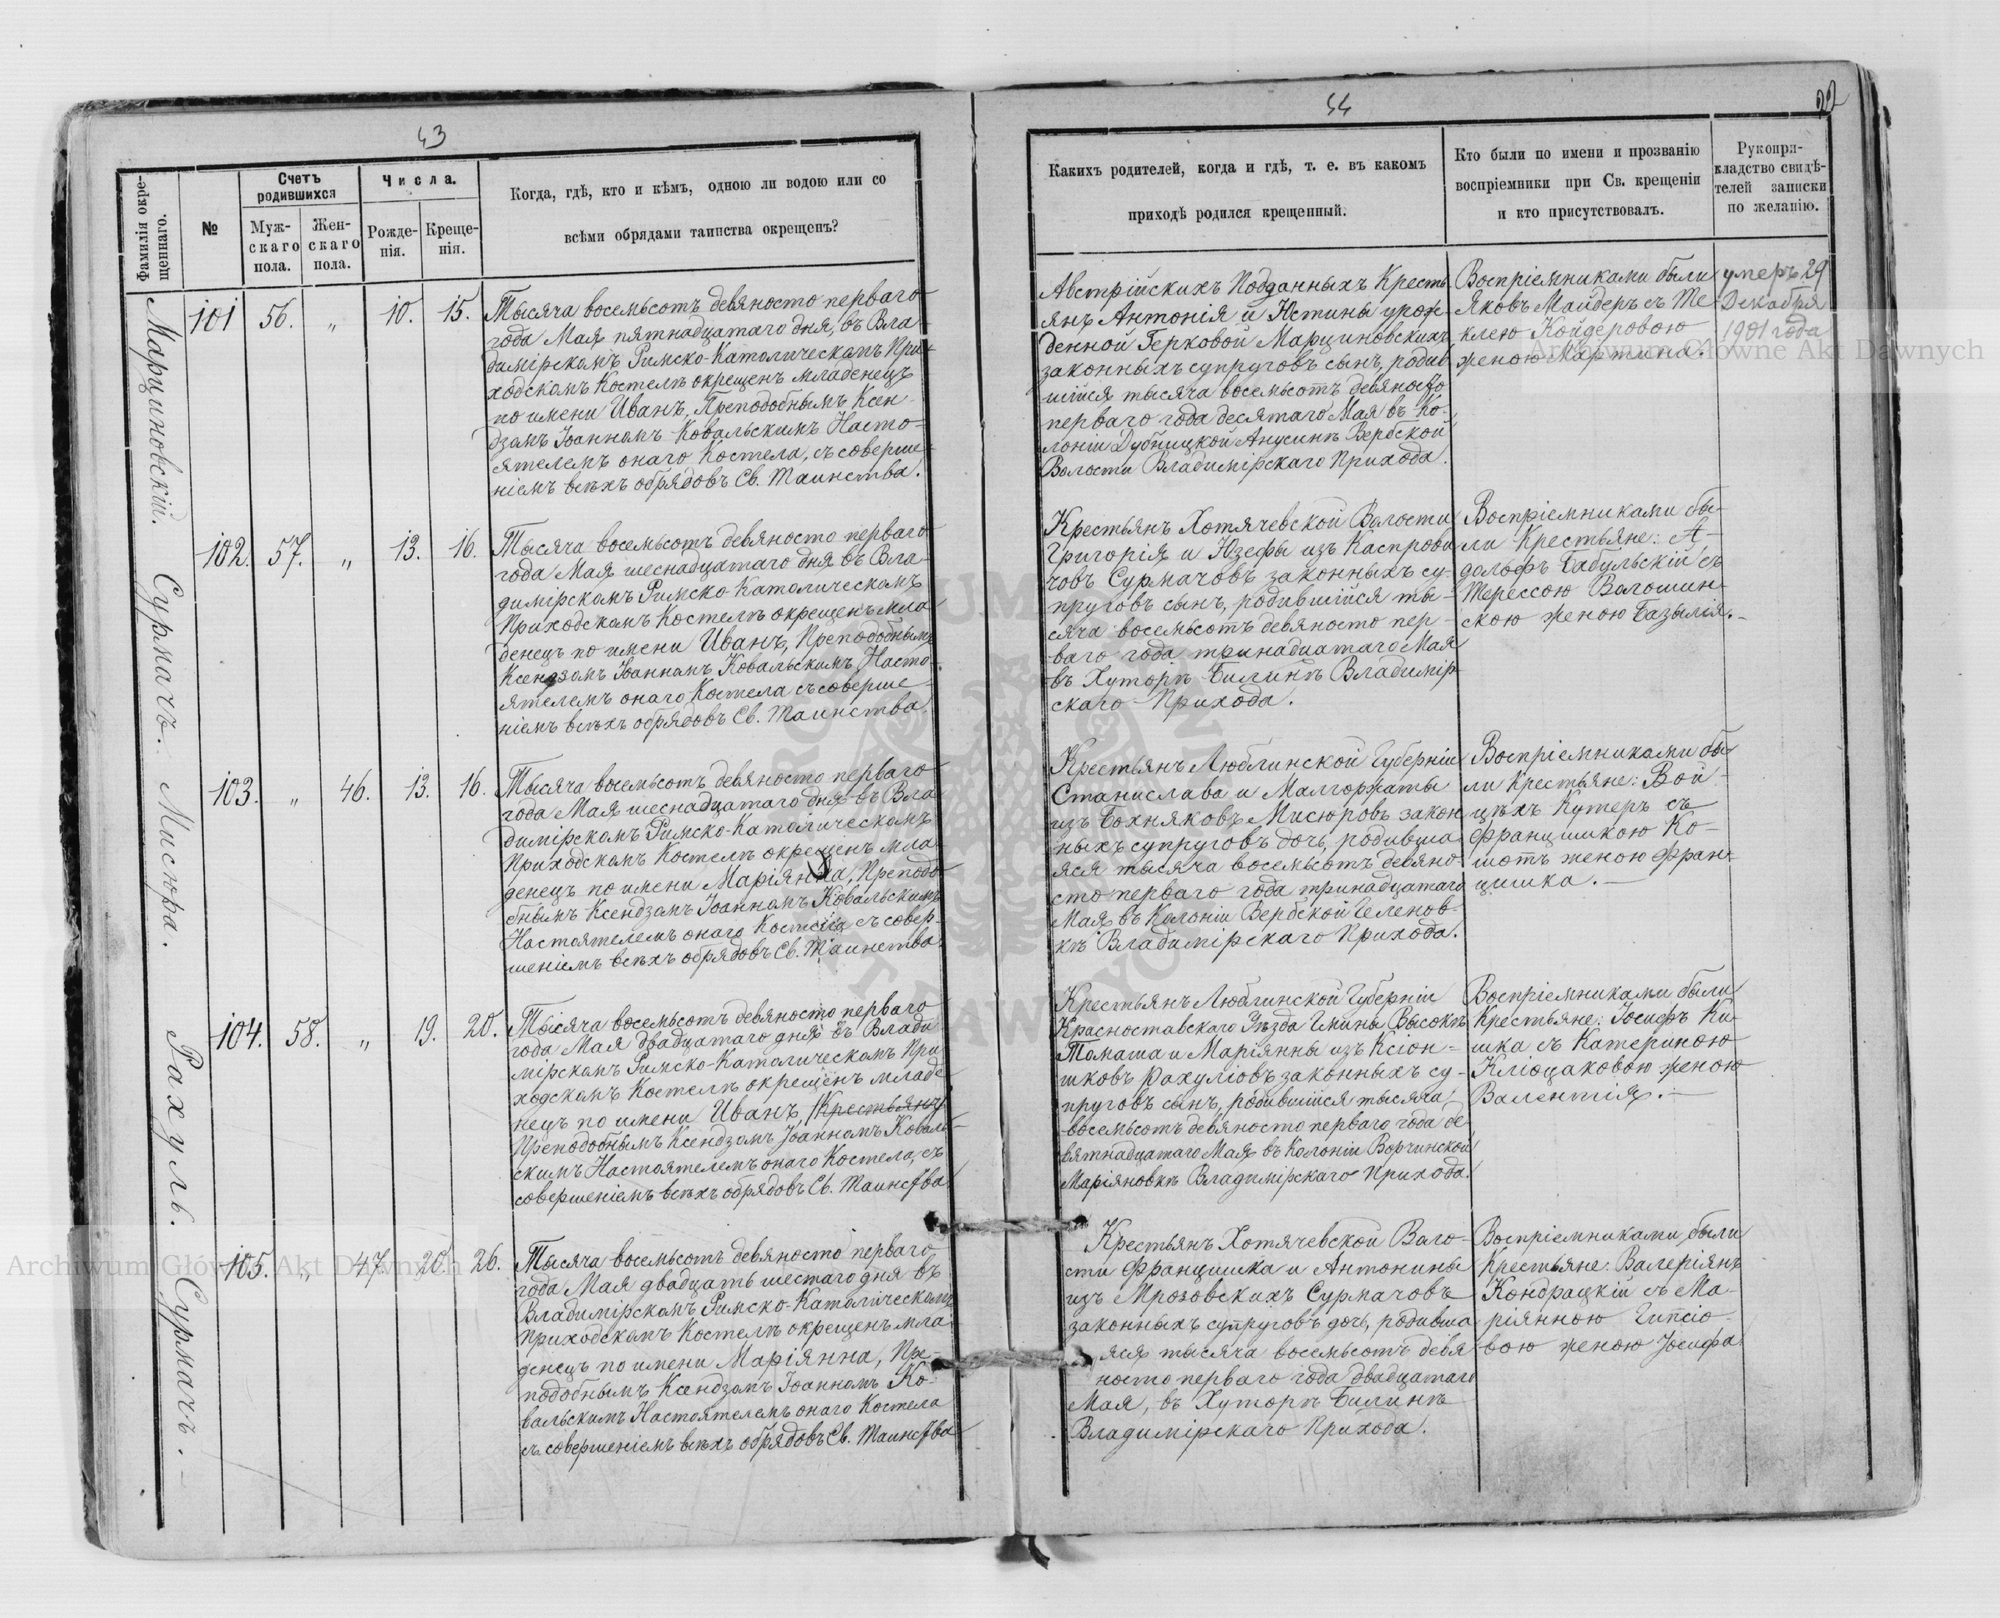 43
Фамилія окре-
щеннаго.
№
Счетъ
родившихся
Муж-
скаго
пола.
Жен-
скаго
пола.
Числа.
Рожде-
нія.
Креще-
нія.
Когда, гдѣ, кто и кѣмъ, одною ли водою или со
всѣми обрядами таинства окрещенъ?
Марциновскій.
101 56. „ 10. 15.
Тысяча восемьсотъ девяносто перваго
года Мая пятнадцатаго дня, въ Вла-
димірскомъ Римско-Католическомъ При-
ходскомъ Костелѣ окрещенъ младенецъ
по имени Иванъ, Преподобнымъ Ксен-
дзомъ Іоанномъ Ковальскимъ Насто-
ятелемъ онаго Костела, съ соверше-
ніемъ всѣхъ обрядовъ Св. Таинства.
Сурмачъ.
102. 57. „ 13. 16.
Тысяча восемьсотъ девяносто перваго
года Мая шеснадцатаго дня въ Вла-
димірскомъ Римско-Католическомъ
Приходскомъ Костелѣ окрещенъ мла
денецъ по имени Иванъ, Преподобнымъ
Ксендзомъ Іоанномъ Ковальскимъ, Насто-
ятелемъ онаго Костела съ соверше-
ніемъ всѣхъ обрядовъ Св. Таинства.
Мисюра.
103. „ 46. 13. 16.
Тысяча восемьсотъ девяносто перваго
года Мая шеснадцатаго дня въ Вла
димірскомъ Римско-Католическомъ
Приходскомъ Костелѣ окрещенъ мла
денецъ по имени Маріянна, Преподо
бнымъ Ксендзомъ Іоанномъ Ковальскимъ
Настоятелемъ онаго Костела съ совер-
шеніемъ всѣхъ обрядовъ Св. Таинства.
Рахуль.
104. 58. „ 19. 20.
Тысяча восемьсотъ девяносто перваго
года Мая двадцатаго дня въ Влади
мірскомъ Римско-Католическомъ При
ходскомъ Костелѣ окрещенъ младе
нецъ по имени Иванъ, Крестьянъ
Преподобнымъ Ксендзомъ Іоанномъ Коваль-
скимъ Настоятелемъ онаго Костела, съ
совершеніемъ всѣхъ обрядовъ Св. Таинства
Сурмачъ.
105. „ 47. 20. 26.
Тысяча восемьсотъ девяносто перваго
года Мая двадцать шестаго дня въ
Владимірскомъ Римско-Католическомъ
Приходскомъ Костелѣ окрещенъ мла
денецъ по имени Маріянна, Пре-
подобнымъ Ксендзомъ Іоанномъ Ко-
вальскимъ Настоятелемъ онаго Костела
съ совершеніемъ всѣхъ обрядовъ Св. Таинства
44
22
Какихъ родителей, когда и гдѣ, т. е. въ какомъ
приходѣ родился крещенный.
Кто были по имени и прозванію
воспріемники при Св. крещеніи
и кто присутствовалъ.
Рукопри-
кладство свидѣ-
телей записки
по желанію.
Австрійскихъ Подданныхъ Кресть
янъ Антонія и Юстины урож-
денной Герковой Марциновскихъ
законныхъ супруговъ сынъ, родив
шійся тысяча восемьсотъ девяносто
перваго года десятаго Мая въ Ко-
лоніи Дубницкой Анусинъ Вербской
Волости Владимірскаго Прихода.
Воспріемниками были
Яковъ Майдеръ съ Те-
клею Койдеровою
женою Мартина.
умеръ 29
Декабря
1901 года
Крестьянъ Хотячевской Волости
Григорія и Юзефы изъ Каспрови
човъ Сурмачовъ законныхъ су-
пруговъ сынъ, родившійся ты-
сяча восемьсотъ девяносто пер-
ваго года тринадцатаго Мая
въ Хуторѣ Билинѣ Владимір
скаго Прихода.
Воспріемниками бы-
ли Крестьяне: А-
дольфъ Бабульскій съ
Терессою Волошин-
скою женою Базылія.-
Крестьянъ Люблинской Губерніи
Станислава и Малгоржаты
изъ Бохняковъ Мисюровъ закон
ныхъ супруговъ дочь, родивша
яся тысяча восемьсотъ девяно-
сто перваго года тринадцатаго
Мая въ Колоніи Вербской Геленов-
кѣ Владимірскаго Прихода.
Воспріемниками бы-
ли Крестьяне: Вой-
цѣхъ Кутеръ съ
Францишкою Ко-
шотъ женою Фран-
цишка.-
Крестьянъ Люблинской Губерніи
Красноставскаго Уѣзда Гмины Высокѣ
Томаша и Маріянны изъ Ксіон-
шковъ Рахуліовъ законныхъ су-
пруговъ сынъ, родившійся тысяча
восемьсотъ девяносто перваго года де-
вятнадцатаго Мая въ Колоніи Ворчинской
Маріяновкѣ Владимірскаго Прихода.
Воспріемниками были
Крестьяне: Іосифъ Ки-
шка съ Катериною
Кліоцаковою женою
Валентія.-
Крестьянъ Хотячевской Воло-
сти Францишка и Антонины
изъ Мрозовскихъ Сурмачовъ
законныхъ супруговъ дочь, родивша
яся тысяча восемьсотъ девя
носто перваго года двадцатаго
Мая, въ Хуторѣ Билинѣ
Владимірскаго Прихода.
Воспріемниками были
Крестьяне: Валеріянъ
Кондрацкій съ Ма-
ріянною Гипсіо-
вою женою Іосифа
Archiwum Główne Akt Dawnych
Archiwum Główne Akt Dawnych